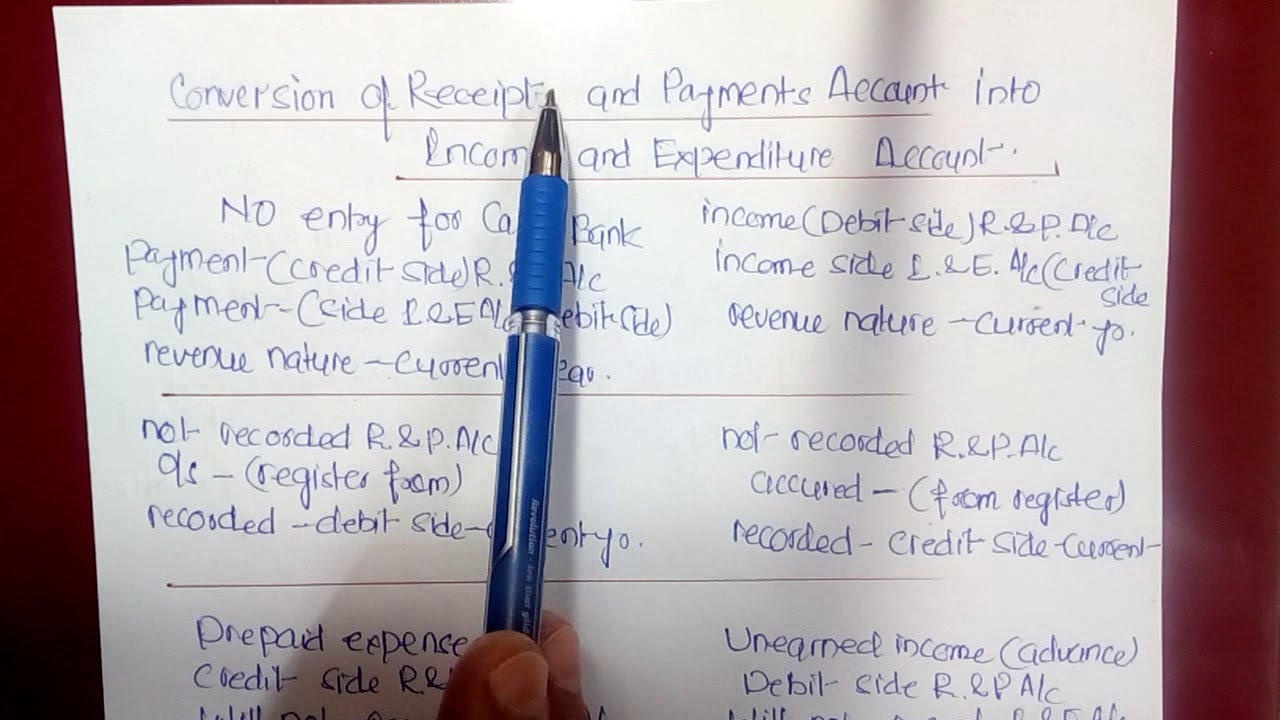 Conversion of Receipts and Payments Account into
Income and Expenditure Account.
No entry for Bank
Payment-(credit side) R. A/c
Payment-(side I.&E A/c debit side)
revenue nature - current year.
income (Debit side) R.&P. A/c
income side I.&E. A/c (Credit
side
revenue nature - current yr.
not recorded R.&P. A/c
o/s - (register from)
recorded - debit side - current yr.
not recorded R.&P. A/c
accured - (from register)
recorded - credit side - current
Prepaid expense
Credit side R.&
Unearned income (advance)
Debit side R.&P A/c
Revolution